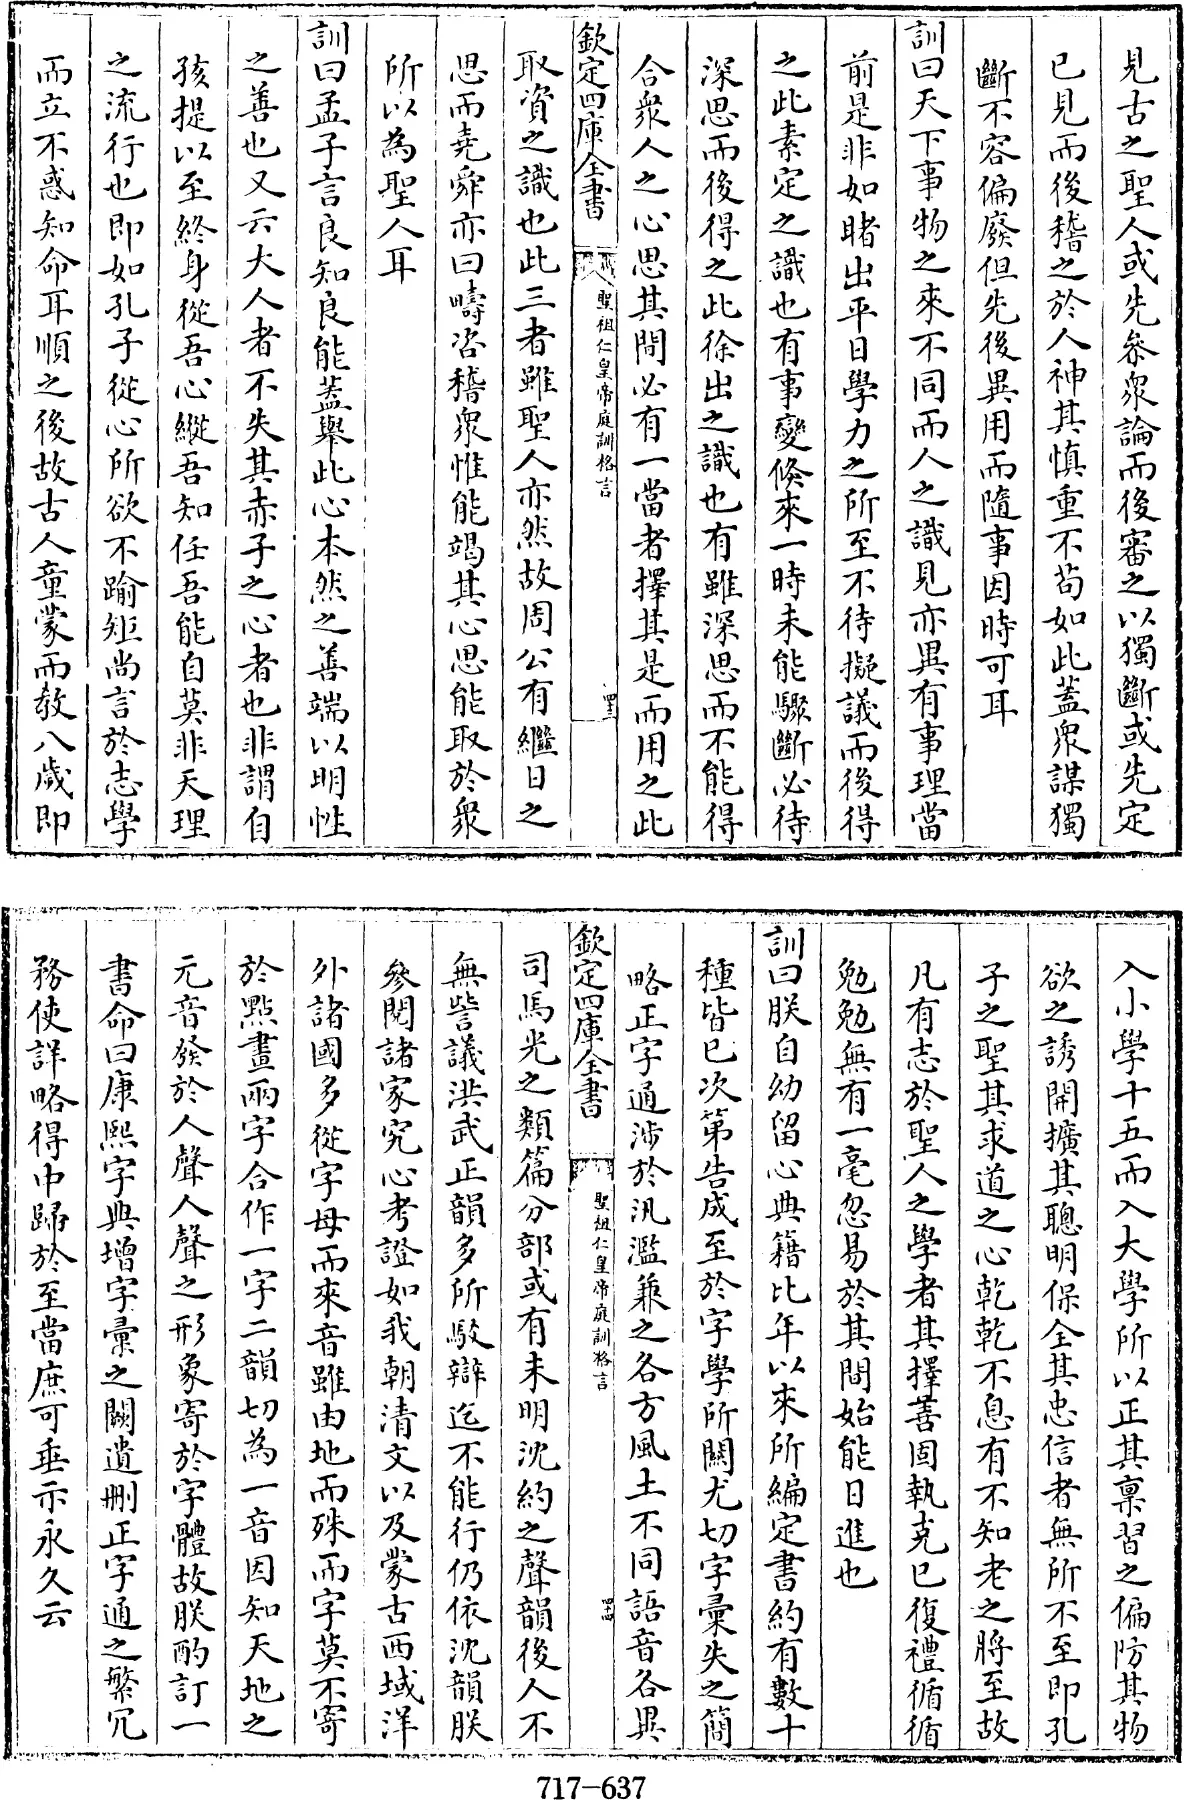 見古之聖人或先叅衆論而後審之以獨斷或先定
已見而後稽之於人神其慎重不苟如此蓋衆謀獨
斷不容偏廢但先後異用而隨事因時可耳
訓曰天下事物之來不同而人之識見亦異有事理當
前是非如睹出平日學力之所至不待擬議而後得
之此素定之識也有事變倐來一時未能驟斷必待
深思而後得之此徐出之識也有雖深思而不能得
合衆人之心思其間必有一當者擇其是而用之此
欽定四庫全書
聖祖仁皇帝庭訓格言
四十三
取資之識也此三者雖聖人亦然故周公有繼日之
思而堯舜亦曰疇咨稽衆惟能竭其心思能取於衆
所以為聖人耳
訓曰孟子言良知良能蓋舉此心本然之善端以明性
之善也又云大人者不失其赤子之心者也非謂自
孩提以至終身從吾心縱吾知任吾能自莫非天理
之流行也即如孔子從心所欲不踰矩尚言於志學
而立不惑知命耳順之後故古人童蒙而教八歲即
入小學十五而入大學所以正其稟習之偏防其物
欲之誘開擴其聰明保全其忠信者無所不至即孔
子之聖其求道之心乾乾不息有不知老之將至故
凡有志於聖人之學者其擇善固執克已復禮循循
勉勉無有一毫忽易於其間始能日進也
訓曰朕自幼留心典籍比年以來所編定書約有數十
種皆已次第告成至於字學所關尤切字彙失之簡
略正字通涉於汎濫兼之各方風土不同語音各異
欽定四庫全書
聖祖仁皇帝庭訓格言
四十四
司馬光之類篇分部或有未明沈約之聲韻後人不
無訾議洪武正韻多所駁辯迄不能行仍依沈韻朕
叅閱諸家究心考證如我朝清文以及蒙古西域洋
外諸國多從字母而來音雖由地而殊而字莫不寄
於點畫兩字合作一字二韻切為一音因知天地之
元音發於人聲人聲之形象寄於字體故朕酌訂一
書命曰康熙字典增字彙之闕遺刪正字通之繁冗
務使詳略得中歸於至當庶可垂示永久云
717-637